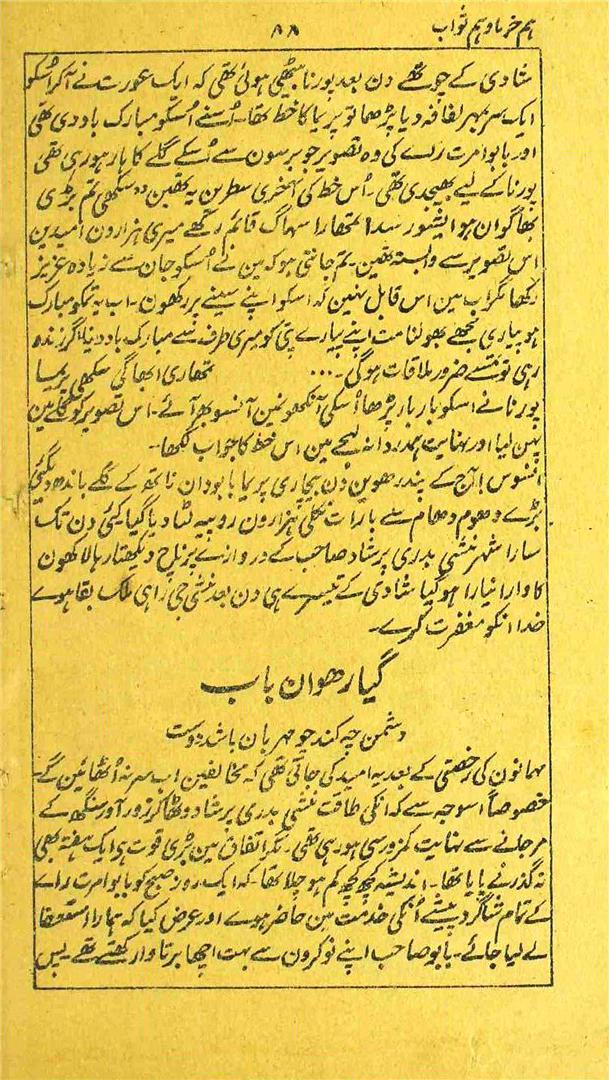 ہم خرما و ہم ثواب ۸۸
شادی کے چوتھے دن بعد پورنا بیٹھی ہوئی تھی کہ ایک عورت نے آکر اُسکو
ایک سر بمہر لفافہ دیا پڑھا تو پریما کا خط تھا۔ اُسنے اُسکو مبارک باد دی تھی
اور بابو امرت رائے کی وہ تصویر جو برسون سے اُسکے گلے کا ہار ہو رہی تھی
پورنا کے لیے بھیجدی تھی۔ اُس خط کی آخری سطرین یہ تھین وہ سکھی تم بڑی
بھاگوان ہو ایشور سدا تمھارا سہاگ قائم رکھے میری ہزارون امیدین
اس تصویر سے وابستہ تھین۔ تم جانتی ہو کہ مین نے اُسکو جان سے زیادہ عزیز
رکھا مگر اب مین اس قابل نہین کہ اسکو اپنے سینے پر رکھون۔ اب یہ تمکو مبارک
ہو پیاری مجھے بھولنا مت اپنے پیارے پتی کو میری طرف سے مبارک باد دینا اگر زندہ
رہی تو تمسے ضرور ملاقات ہوگی۔ ... تمھاری ابھاگی سکھی پریما
پورنا نے اسکو بار بار پڑھا اُسکی آنکھونمین آنسو بھر آئے۔ اس تصویر کو گلے مین
پہن لیا اور نہایت ہمدردانہ لہجے مین اس خط کا جواب لکھا۔
افسوس! آج کے پندرھوین دن بیچاری پریما بابو دان ناتھ کے گلے باندھ دی گئی
بڑے دھوم دھام سے بارات نکلی ہزارون روپیہ لٹا دیا گیا کئی دن تک
سارا شہر منشی بدری پرشاد صاحب کے دروازے پر ناچ دیکھتا رہا لاکھون
کا وارا نیارا ہوگیا شادی کے تیسرے ہی دن بعد منشی جی راہی ملک بقا ہوے
خدا انکو مغفرت کرے۔
گیارھوان باب
دشمن چہ کند چو مہربان باشد دوست
مہمانون کی رخصتی کے بعد یہ امید کی جاتی تھی کہ مخالفین اب سر نہ اُٹھائین گے
خصوصاً اسوجہ سے کہ انکی طاقت منشی بدری پرشاد و ٹھاکر زور آور سنگھ کے
مرجانے سے نہایت کمزور سی ہو رہی تھی۔ مگر اتفاق مین بڑی قوت ہے ایک ہفتہ بھی
نہ گذرنے پایا تھا۔ اندیشہ کچھ کچھ کم ہو چلا تھا۔ کہ ایک روز صبح کو بابو امرت رائے
کے تمام شاگرد پیشے اُنکی خدمت مین حاضر ہوے اور عرض کیا کہ ہمارا استعفا
لے لیا جائے۔ بابو صاحب اپنے نوکرون سے بہت اچھا برتاو رکھتے تھے۔ پس